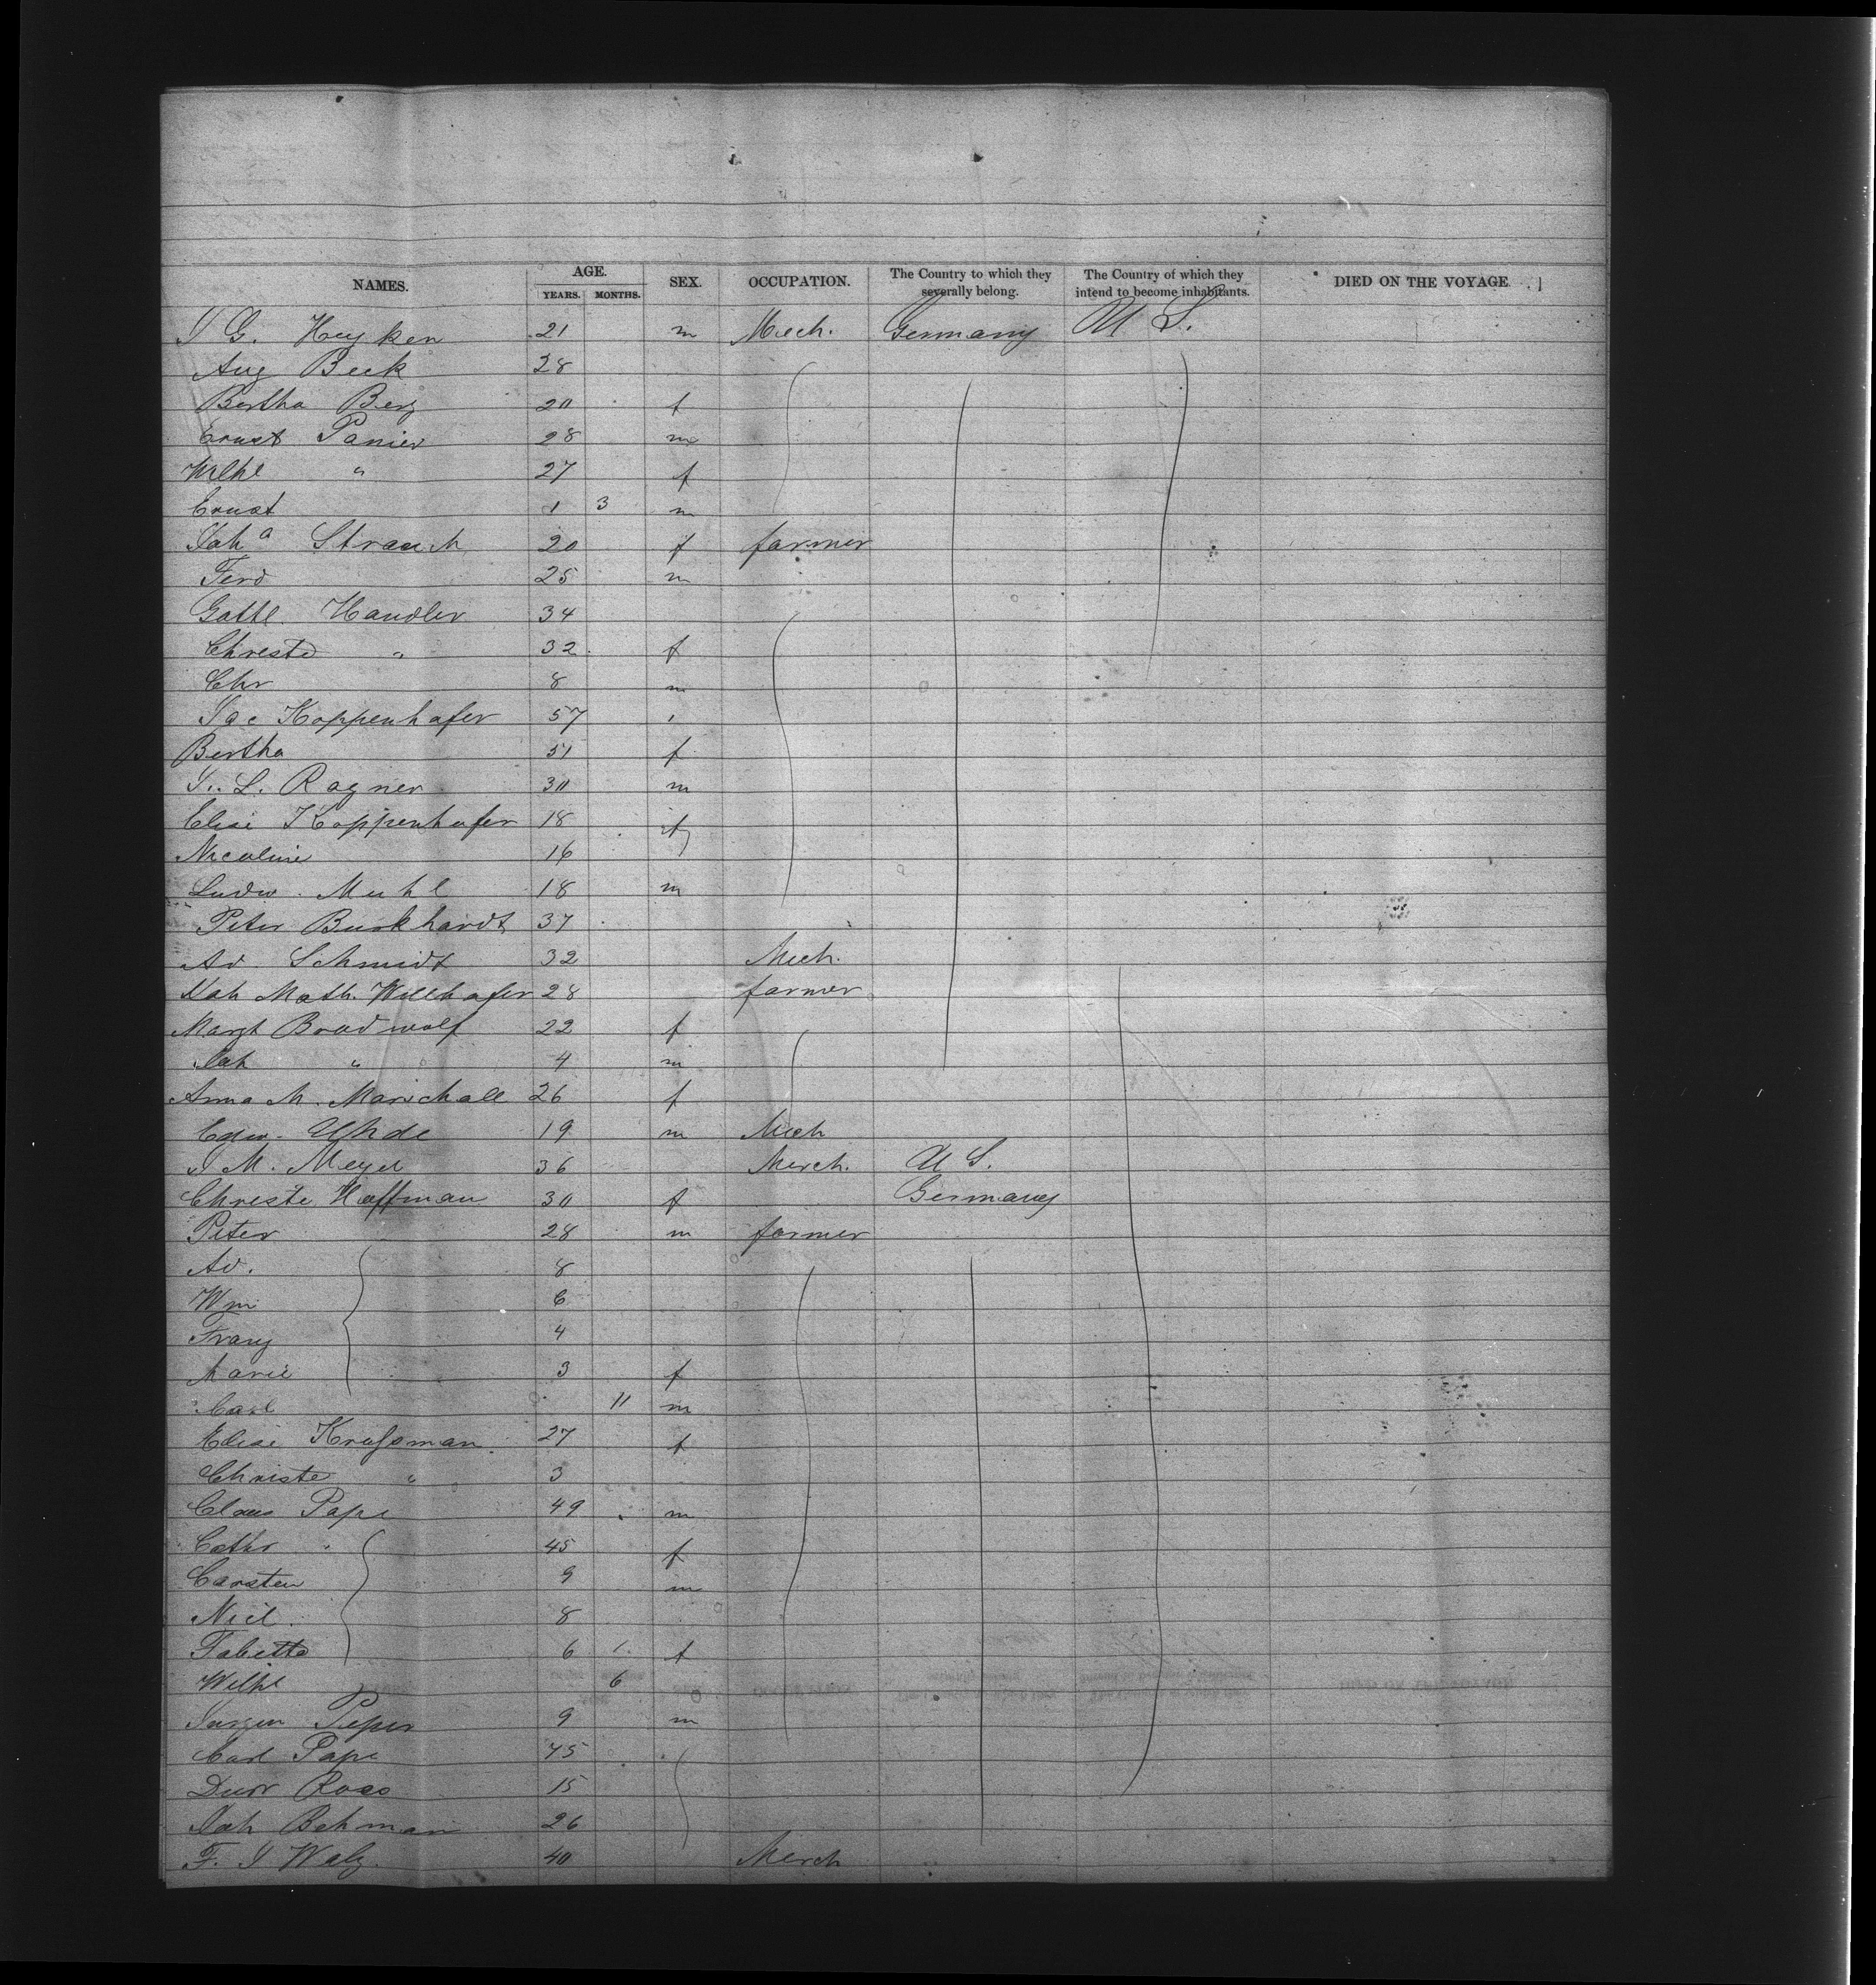 NAMES. AGE. YEARS. MONTHS. SEX. OCCUPATION. The Country to which they severally belong. The Country of which they intend to become inhabitants. DIED ON THE VOYAGE.
J G. Heyken 21 m Mech. Germany U S.
Aug Beck 28
Bertha Berg 20 f
Ernst Panier 28 m
Wilhl " 27 f
Ernst 1 3 m
Joha Strauch 20 f farmer
Ferd 25 m
Gottl. Handler 34
Christe " 32 f
Chr 8 m
Jac Koppenhafer 57 "
Bertha 51 f
J. L. Ragner 30 m
Elise Koppenhafer 18 f
Nicoline 16
Ludw. Muhl 18 m
Peter Burkhardt 37
Ad. Schmidt 32 Mech.
Joh Math. Willhafer 28 farmer
Margt Bradwolf 22 f
Joh " 4 m
Anna M. Marschall 26 f
Edw. Uhde 19 m Mech
J M. Meyer 36 Merch. U S.
Christe Hoffman 30 f Germany
Peter 28 m farmer
Ad. 8
Wm 6
Franz 4
Marie 3 f
Carl 11 m
Elise Krussman 27 f
Christe " 3
Claus Pape 49 m
Cathr " 45 f
Carsten 9 m
Nicl. 8
Tabetta 6 f
Wilhl 6
Jurgen Pieper 9 m
Carl Pape 75
Diedr Ross 15
Joh Behman 26
F. J Walz. 40 Merch